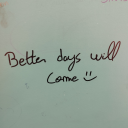 Better days will
come ☺